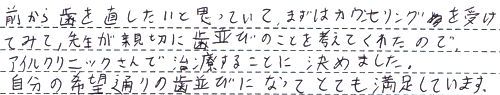 前から歯を直したいと思っていて、まずはカウセリングを受け
てみて、先生が親切に歯並びのことを考えてくれたので、
アイルクリニックさんで治療することに決めました。
自分の希望通りの歯並びになってとても満足しています。